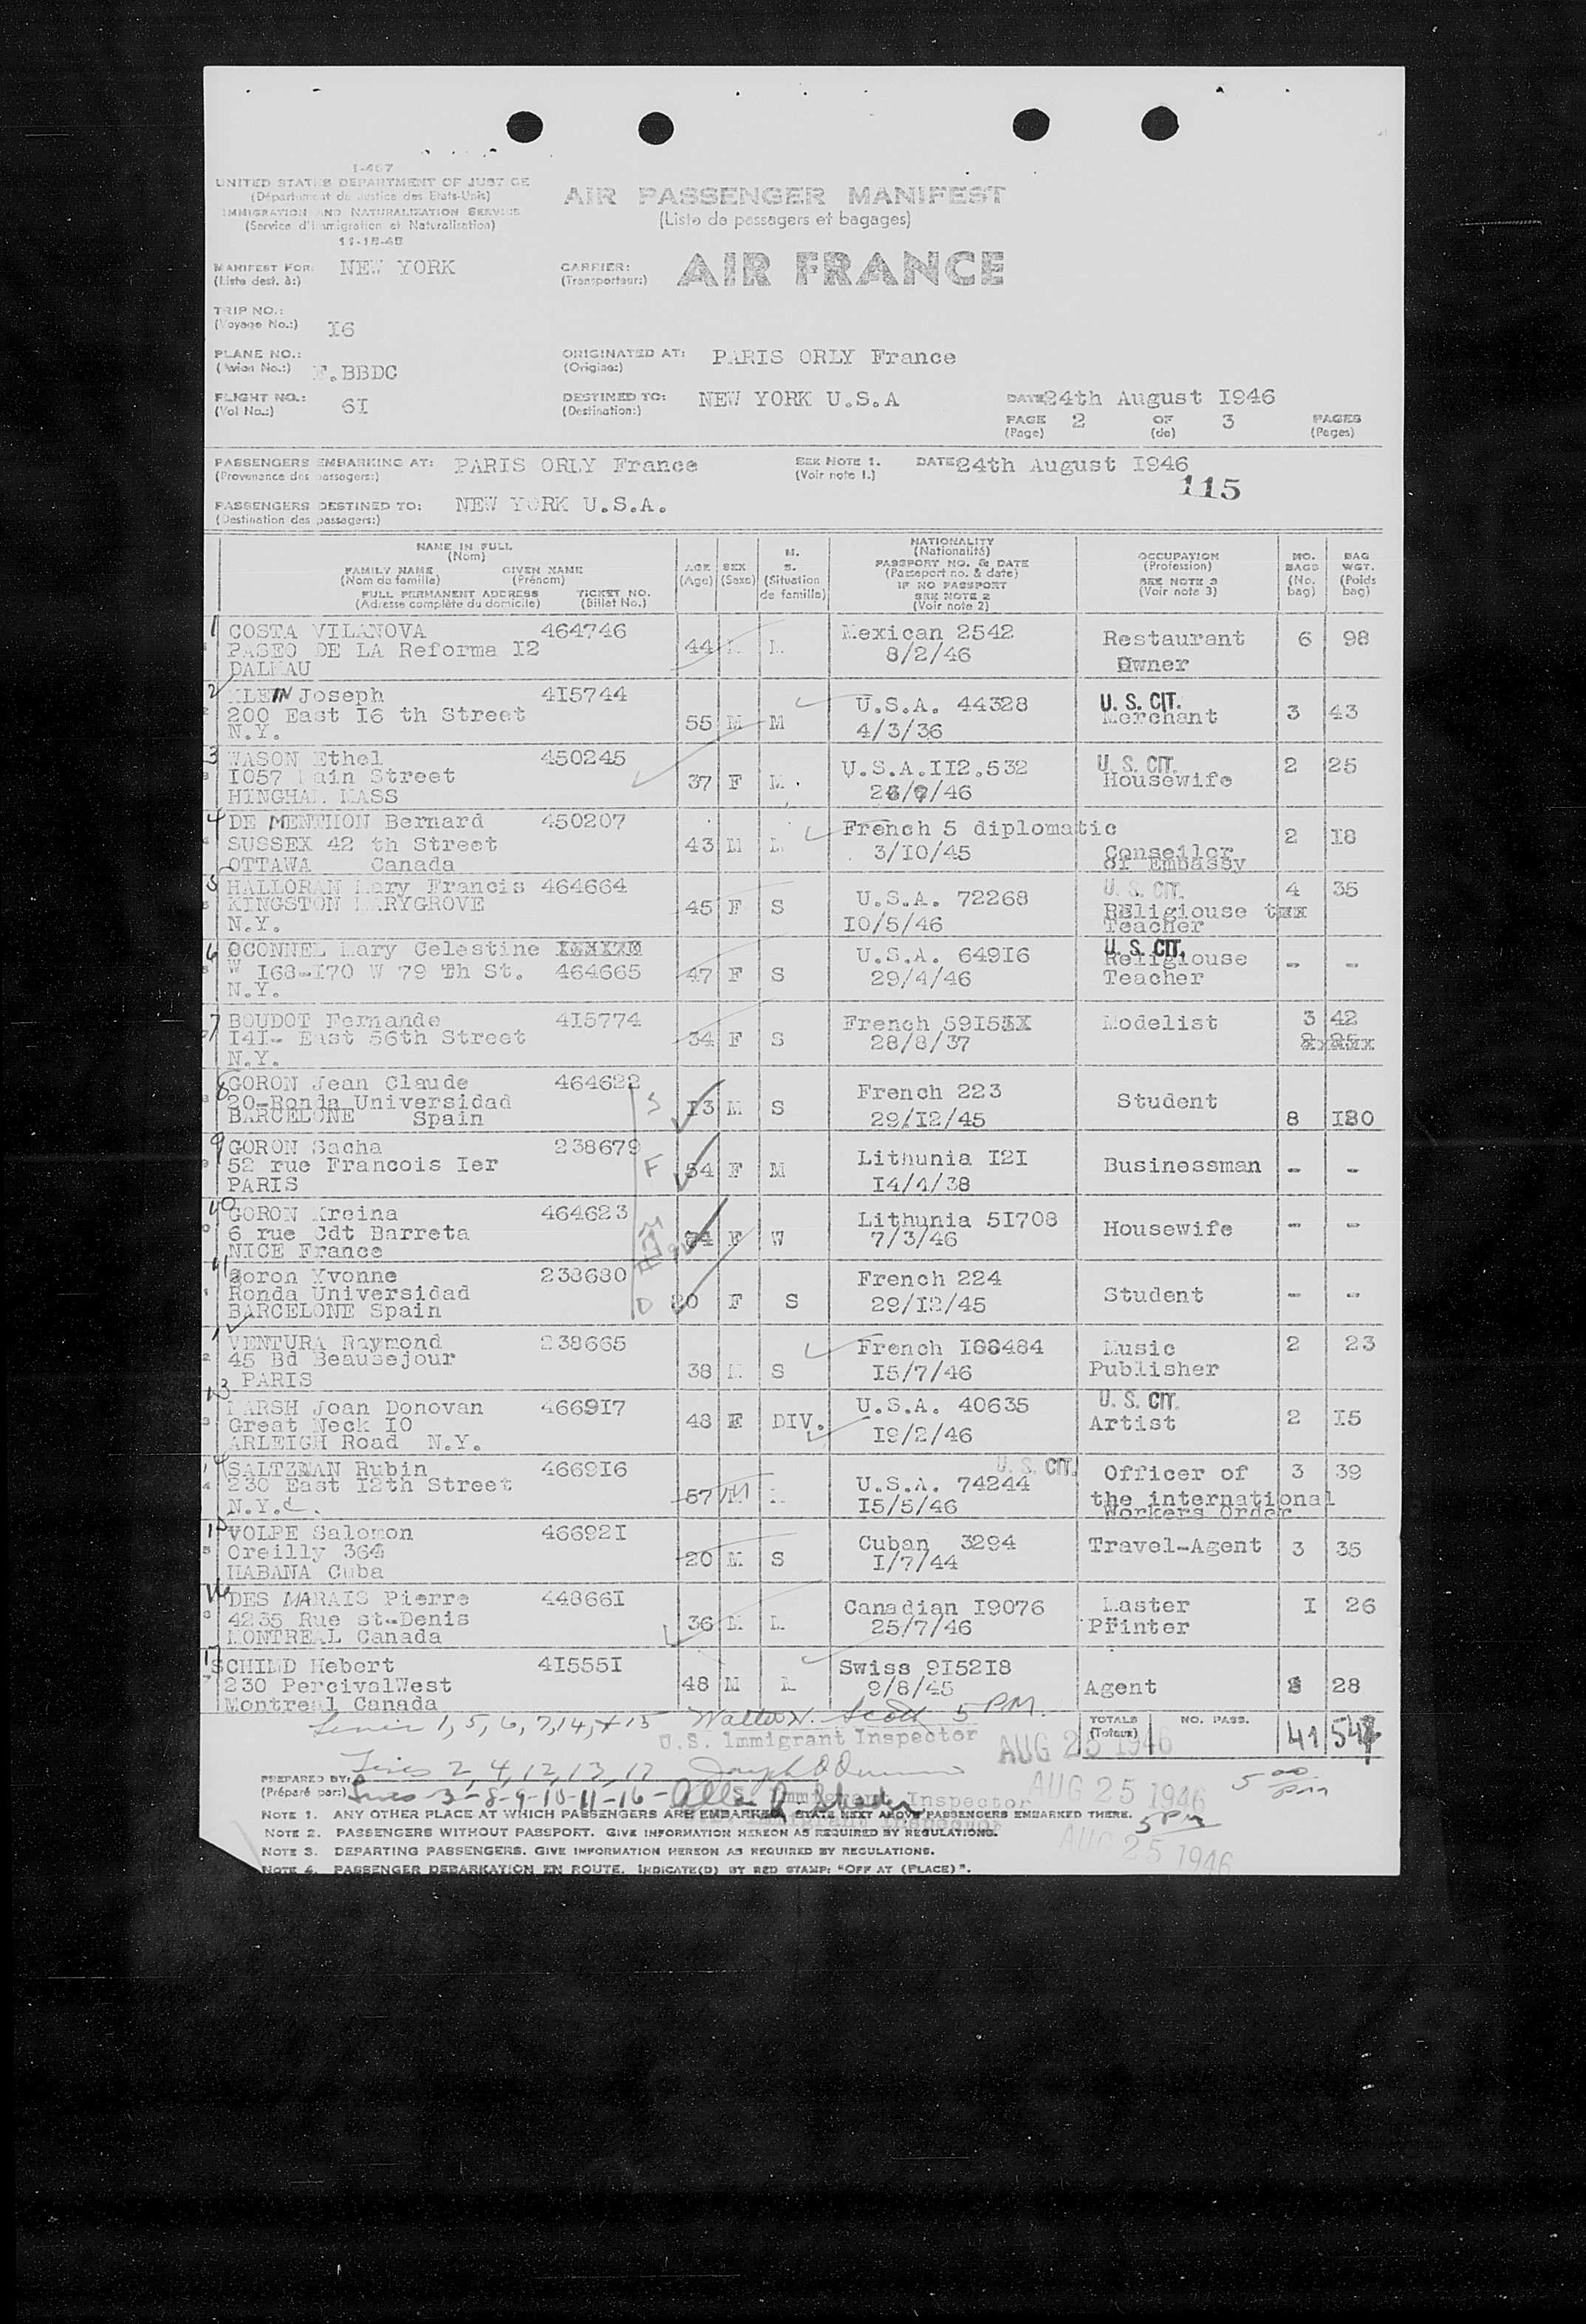 I-467
UNITED STATES DEPARTMENT OF JUSTICE
(Département de Justice des Etats-Unis)
IMMIGRATION AND NATURALIZATION SERVICE
(Service d'Immigration et Naturalisation)
11-18-45
AIR PASSENGER MANIFEST
(Liste de passagers et bagages)
MANIFEST FOR: NEW YORK
(Liste dest. à:)
CARRIER: AIR FRANCE
(Transporteur:)
TRIP NO.: I6
(Voyage No.:)
PLANE NO.: F.BBDC
(Avion No.:)
ORIGINATED AT: PARIS ORLY France
(Origine:)
FLIGHT NO.: 6I
(Vol No.:)
DESTINED TO: NEW YORK U.S.A
(Destination:)
DATE 24th August I946
PAGE 2 OF 3 PAGES
(Page) (de) (Pages)
PASSENGERS EMBARKING AT: PARIS ORLY France
(Provenance des passagers:)
SEE NOTE 1.
(Voir note 1.)
DATE 24th August I946
115
PASSENGERS DESTINED TO: NEW YORK U.S.A.
(Destination des passagers:)
NAME IN FULL
(Nom)
FAMILY NAME GIVEN NAME
(Nom de famille) (Prénom)
FULL PERMANENT ADDRESS TICKET NO.
(Adresse complète du domicile) (Billet No.)
AGE
(Age)
SEX
(Sexe)
M.
S.
(Situation
de famille)
NATIONALITY
(Nationalité)
PASSPORT NO. & DATE
(Passeport no. & date)
IF NO PASSPORT
SEE NOTE 2
(Voir note 2)
OCCUPATION
(Profession)
SEE NOTE 3
(Voir note 3)
NO.
BAGS
(No.
bag)
BAG
WGT.
(Poids
bag)
1 COSTA VILANOVA 464746 44 M M Mexican 2542 Restaurant 6 98
PASEO DE LA Reforma I2 8/2/46 Owner
DALMAU
2 KLEIN Joseph 4I5744 55 M M U.S.A. 44328 U. S. CIT. Merchant 3 43
200 East I6 th Street 4/3/36
N.Y.
3 WASON Ethel 450245 37 F M. U.S.A.II2.532 U. S. CIT. Housewife 2 25
I057 Main Street /46
HINGHAM MASS
4 DE MENTHON Bernard 450207 43 M M French 5 diplomatic 2 I8
SUSSEX 42 th Street 3/I0/45 Conseilor
OTTAWA Canada of Embassy
5 HALLORAN Mary Francis 464664 45 F S U.S.A. 72268 U. S. CIT. 4 35
KINGSTON MARYGROVE I0/5/46 REligiouse
N.Y. Teacher
6 OCONNEL Mary Celestine 47 F S U.S.A. 649I6 U. S. CIT. Religiouse - -
W I68-I70 W 79 Th St. 464665 29/4/46 Teacher
N.Y.
7 BOUDOT Fernande 4I5774 34 F S French 59I5 Modelist 3 42
I4I- East 56th Street 28/8/37
N.Y.
8 GORON Jean Claude 464622 S I3 M S French 223 Student
20-Ronda Universidad 29/I2/45 8 I80
BARCELONE Spain
9 GORON Sacha 238679 F 54 F M Lithunia I2I Businessman - -
52 rue Francois Ier I4/4/38
PARIS
10 GORON Kreina 464623 F W Lithunia 5I708 Housewife - -
6 rue Cdt Barreta 7/3/46
NICE France
11 Goron Yvonne 238680 D 20 F S French 224 Student - -
Ronda Universidad 29/I2/45
BARCELONE Spain
VENTURA Raymond 238665 38 M S French I88484 Music 2 23
45 Bd Beausejour I5/7/46 Publisher
PARIS
13 MARSH Joan Donovan 4669I7 48 F DIV. U.S.A. 40635 U. S. CIT. Artist 2 I5
Great Neck I0 I9/2/46
ARLEIGH Road N.Y.
14 SALTZMAN Rubin 4669I6 57 M M U.S.A. 74244 U. S. CIT. Officer of 3 39
230 East I2th Street I5/5/46 the international
N.Y.C. Workers Order
15 VOLPE Salomon 46692I 20 M S Cuban 3294 Travel-Agent 3 35
Oreilly 364 I/7/44
HABANA Cuba
16 DES MARAIS Pierre 44866I 36 M M Canadian I9076 Master I 26
4235 Rue st-Denis 25/7/46 Printer
MONTREAL Canada
17 SCHILD Hebert 4I555I 48 M M Swiss 9I52I8 Agent 28
230 PercivalWest 9/8/45
Montreal Canada
Lines 1, 5, 6, 7, 14, + 15 Walter N. Scott 5 PM.
U.S. Immigrant Inspector AUG 25 1946
TOTALS NO. PASS. 41 547
(Totaux)
Lines 2, 4, 12, 13, 17 Joseph
PREPARED BY: U.S. Immigrant Inspector AUG 25 1946 5 00 pm
(Préparé par:) Lines 3-8-9-10-11-16- Immigrant Inspector 5 PM
NOTE 1. ANY OTHER PLACE AT WHICH PASSENGERS ARE EMBARKED, STATE NEXT ABOVE PASSENGERS EMBARKED THERE.
NOTE 2. PASSENGERS WITHOUT PASSPORT. GIVE INFORMATION HEREON AS REQUIRED BY REGULATIONS.
AUG 25 1946
NOTE 3. DEPARTING PASSENGERS. GIVE INFORMATION HEREON AS REQUIRED BY REGULATIONS.
NOTE 4. PASSENGER DEBARKATION EN ROUTE. INDICATE(D) BY RED STAMP: "OFF AT (PLACE)".